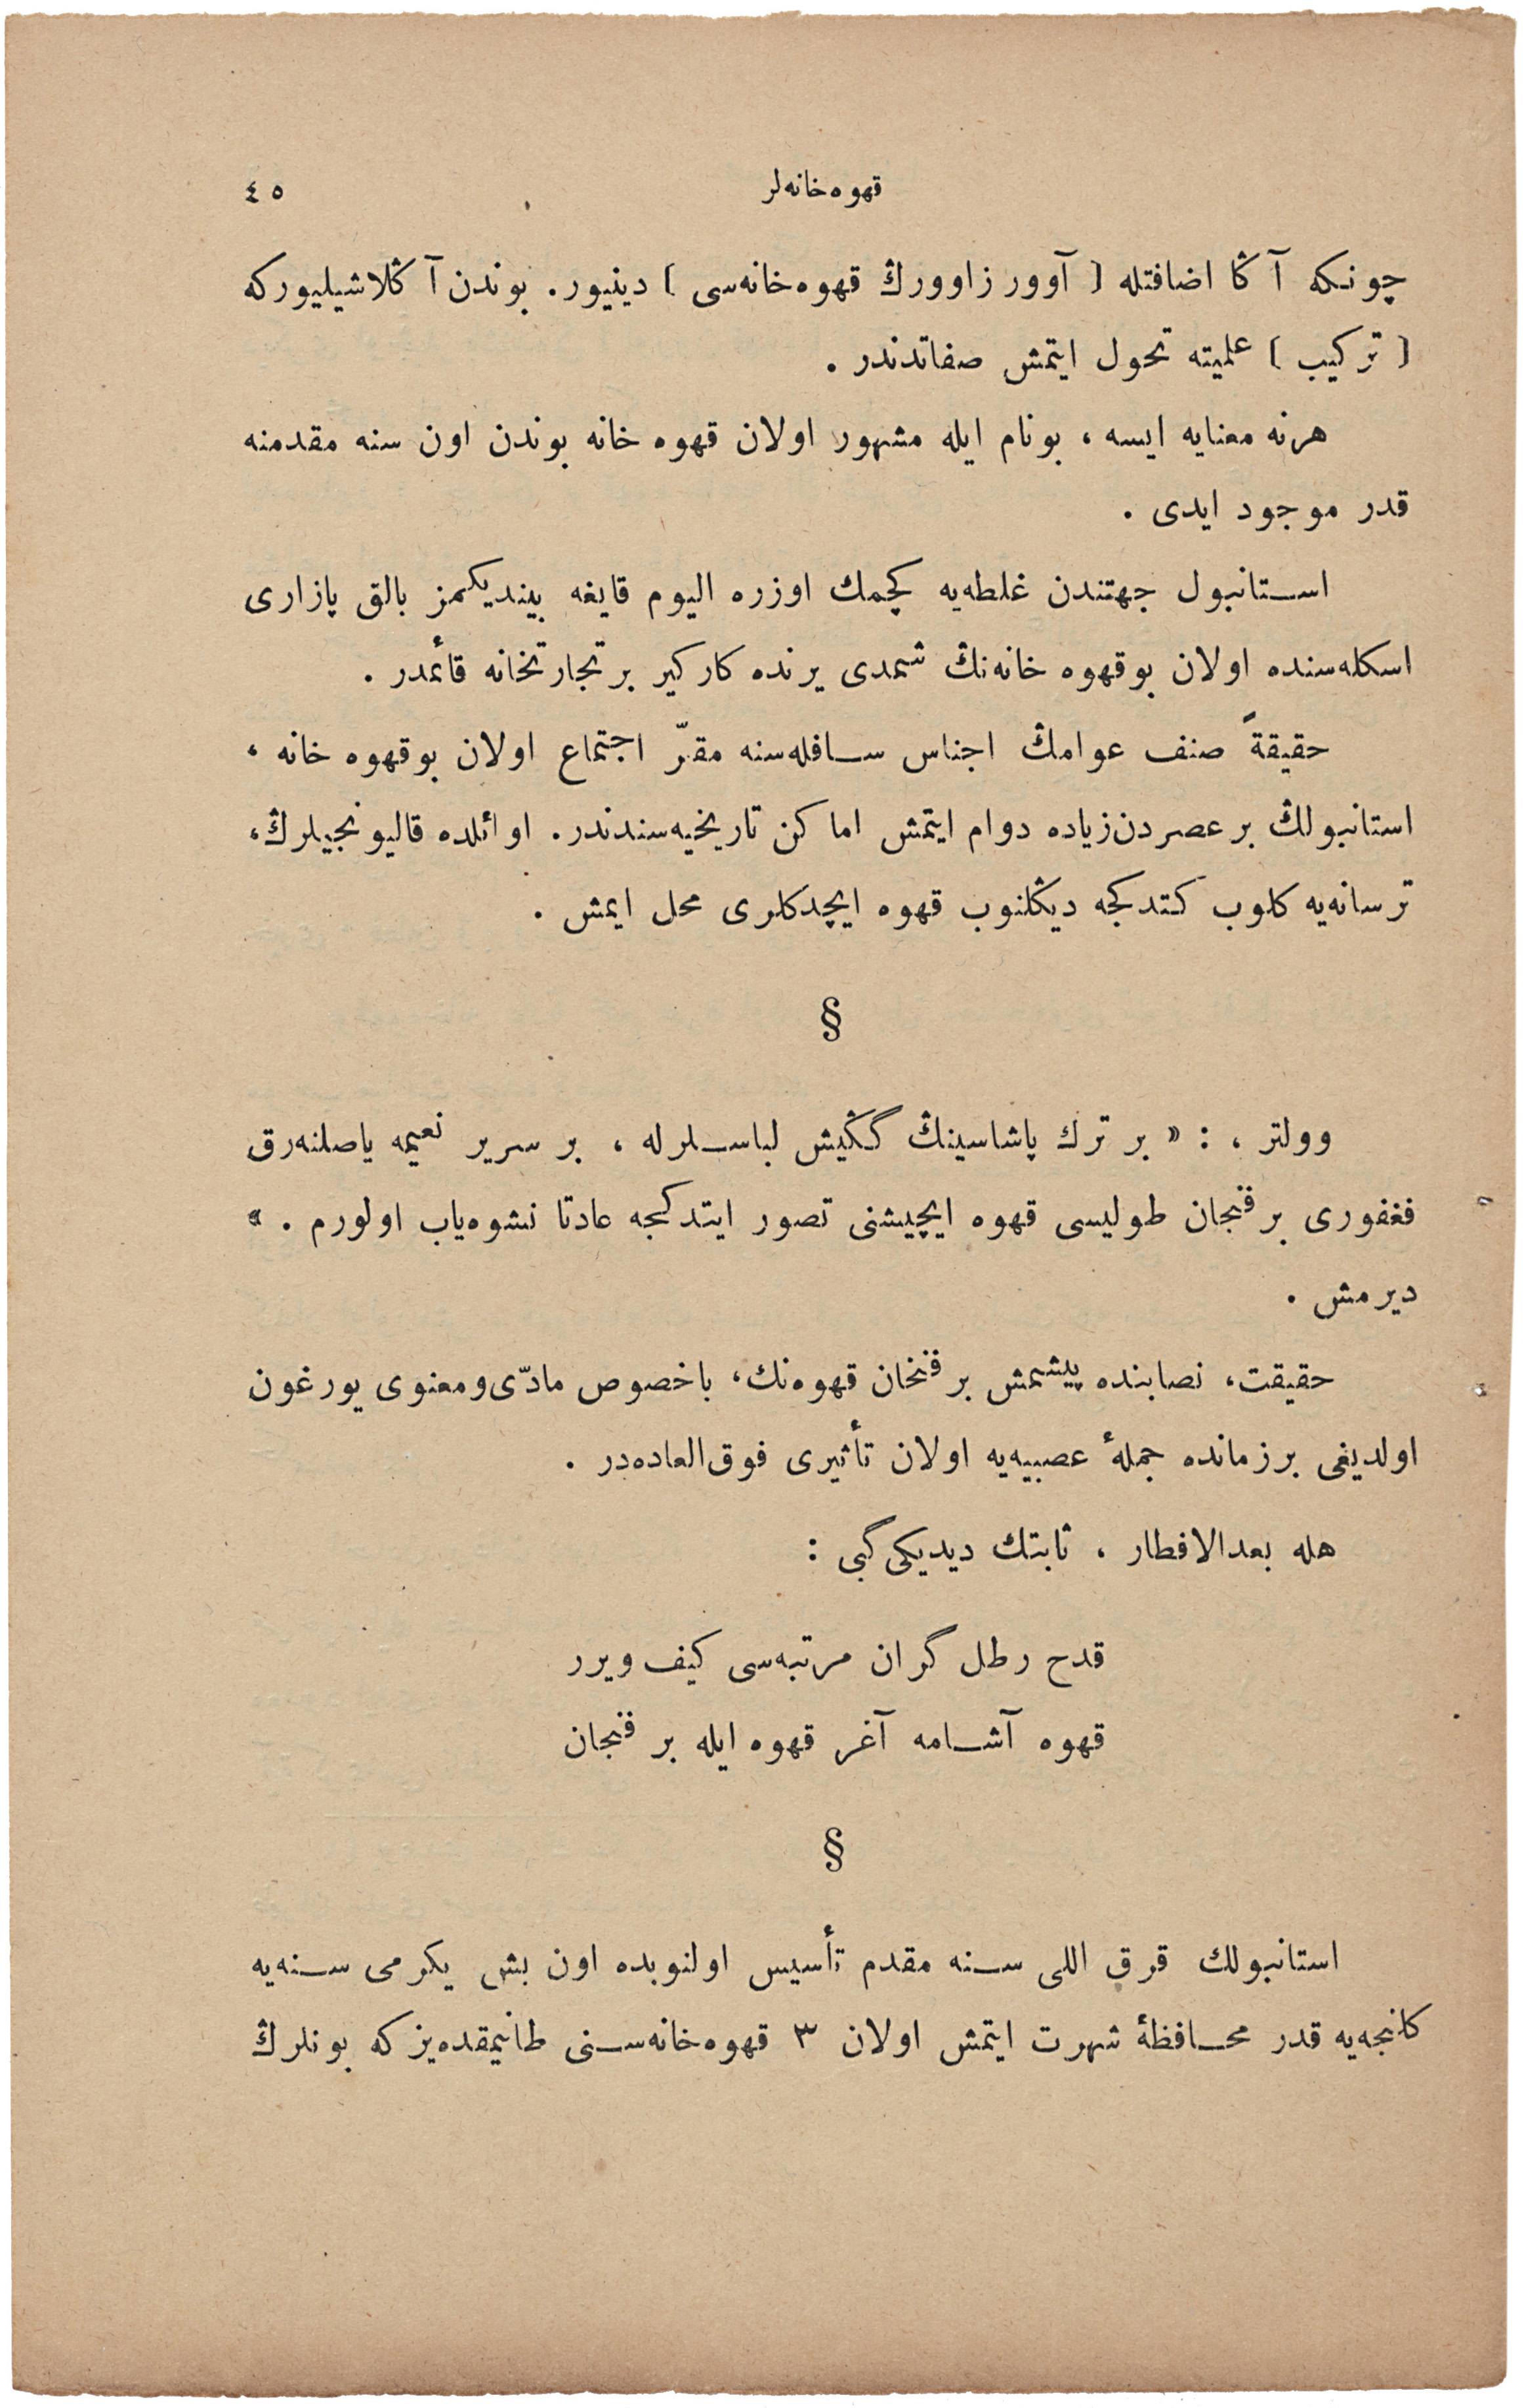 قهوه‌خانه‌لر
٤٥
چونكه آڭا اضافتله [ آوور زاوورڭ قهوه‌خانه‌سی ] دینیور. بوندن آڭلاشیلیوركه
[ تركیب ] علمیته تحول ایتمش صفاتدندر .
هرنه معنایه ایسه ، بونام ایله مشهور اولان قهوه خانه بوندن اون سنه مقدمنه
قدر موجود ایدی .
استانبول جهتندن غلطه‌یه كچمك اوزره الیوم قایغه بیندیكمز بالق پازاری
اسكله‌سنده اولان بوقهوه خانه‌نڭ شمدی یرنده كاركیر بر تجارتخانه قائمدر .
حقیقةً صنف عوامڭ اجناس سافله‌سنه مقرّ اجتماع اولان بوقهوه خانه ،
استانبولڭ بر عصردن زیاده دوام ایتمش اماكن تاریخیه‌سندندر. اوائلده قالیونجیلرڭ،
ترسانه‌یه كلوب كتدكجه دیڭلنوب قهوه ایچدكلری محل ایمش .
§
وولتر ، : « بر ترك پاشاسینڭ گڭیش لباسلرله ، بر سریر نعیمه یاصلنه‌رق
فغفوری بر فنجان طولیسی قهوه ایچیشنی تصور ایتدكجه عادتا نشوه‌یاب اولورم . »
دیرمش .
حقیقت، نصابنده پیشمش بر فنخان قهوه‌نك، باخصوص مادّی‌ومعنوی یورغون
اولدیغی بر زمانده جملهٔ عصبیه‌یه اولان تأثیری فوق‌العاده‌در .
هله بعدالافطار ، ثابتك دیدیكی‌گبی :
قدح رطل گران مرتبه‌سی كیف ویرر
قهوه آشامه آغر قهوه ایله بر فنجان
§
استانبولك قرق اللی سنه مقدم تأسیس اولنوبده اون بش یكرمی سنه‌یه
كانجه‌یه قدر محافظهٔ شهرت ایتمش اولان ٣ قهوه‌خانه‌سنی طانیمقده‌یز كه بونلرڭ